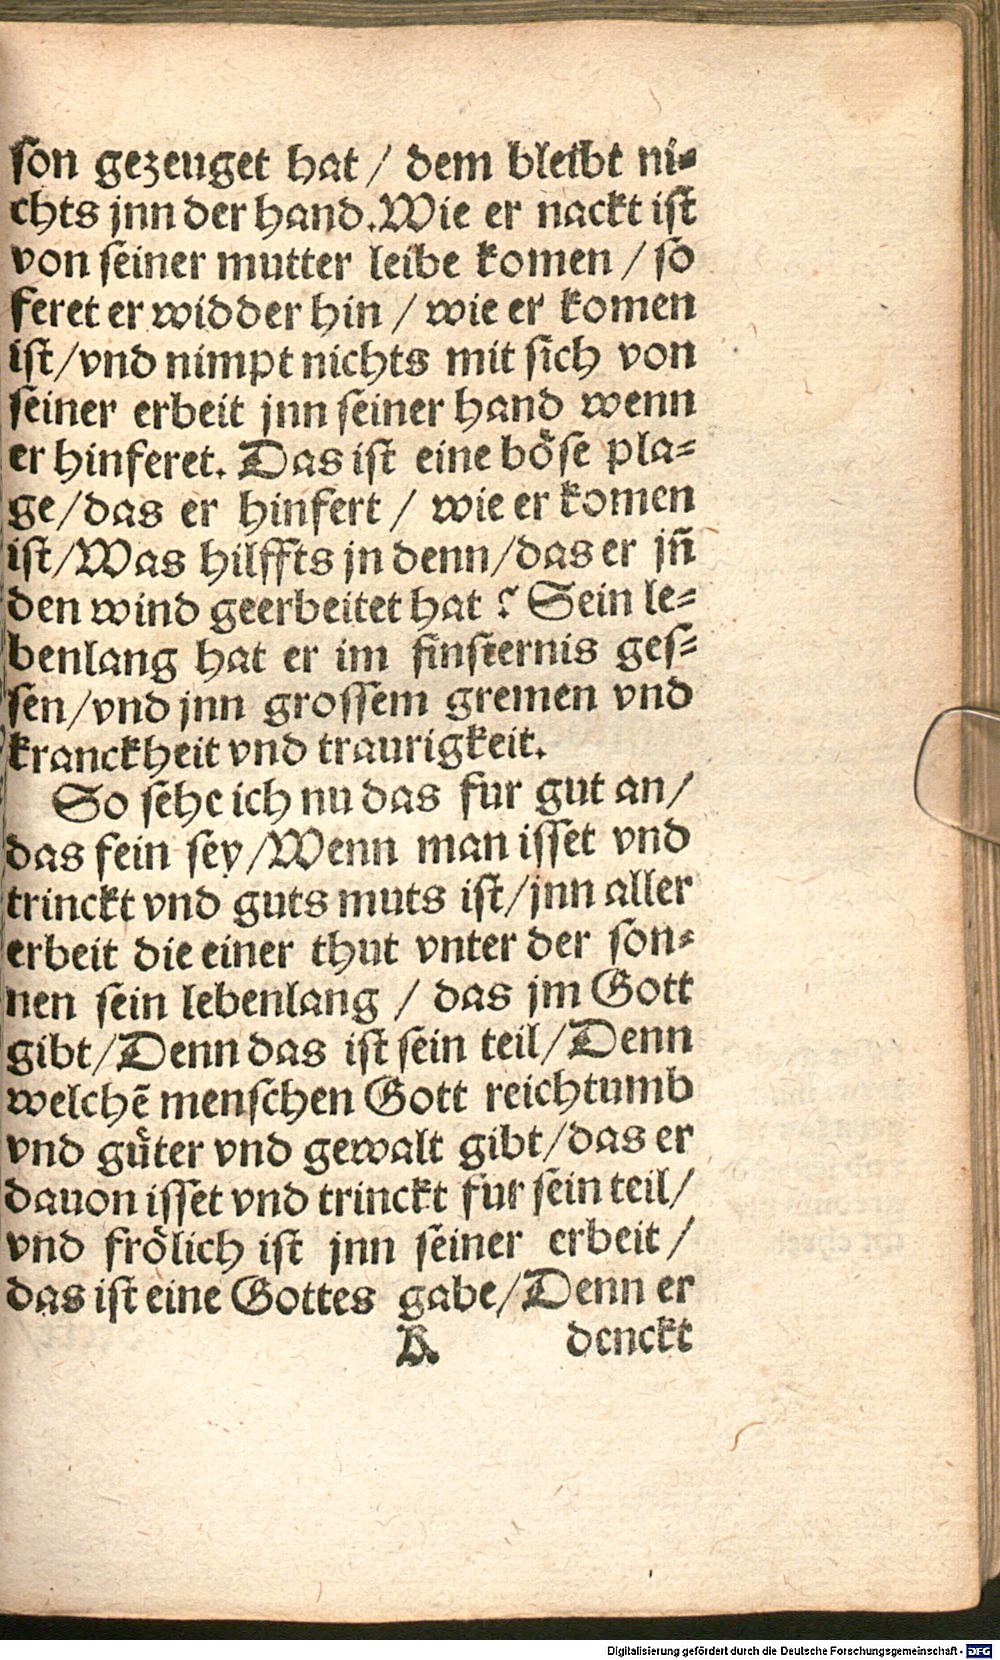 son gezeuget hat / dem bleibt ni-
chts jnn der hand. Wie er nackt ist
von seiner mutter leibe komen / so
feret er widder hin / wie er komen
ist / vnd nimpt nichts mit sich von
seiner erbeit jnn seiner hand wenn
er hinferet. Das ist eine böse pla-
ge / das er hinfert / wie er komen
ist / Was hilffts jn denn / das er jñ
den wind geerbeitet hat ? Sein le-
benlang hat er im finsternis ges-
sen / vnd jnn grossem gremen vnd
kranckheit vnd traurigkeit.
So sehe ich nu das fur gut an /
das fein sey / Wenn man isset vnd
trinckt vnd guts muts ist / jnn aller
erbeit die einer thut vnter der son-
nen sein lebenlang / das jm Gott
gibt / Denn das ist sein teil / Denn
welchē menschen Gott reichtumb
vnd güter vnd gewalt gibt / das er
dauon isset vnd trinckt fur sein teil /
vnd frölich ist jnn seiner erbeit /
das ist eine Gottes gabe / Denn er
denckt
Digitalisierung gefördert durch die Deutsche Forschungsgemeinschaft - DFG